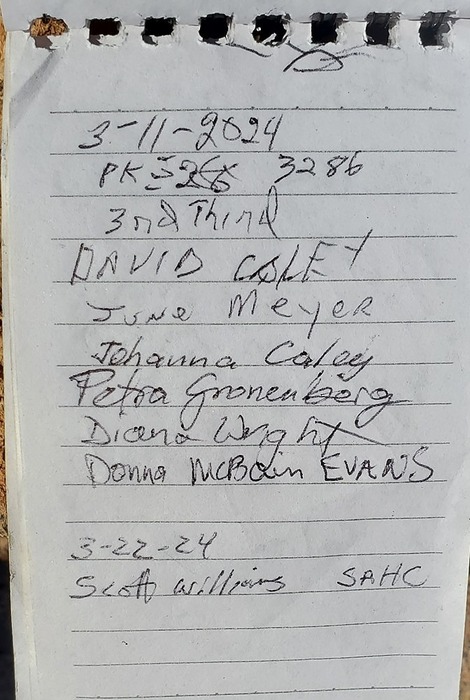 3-11-2024
PK 3286
3nd Third
DAVID COLEY
June Meyer
Johanna Coley
Petra Gronenberg
Diana Wright
Donna McBain EVANS
3-22-24
Scott Williams SAHC